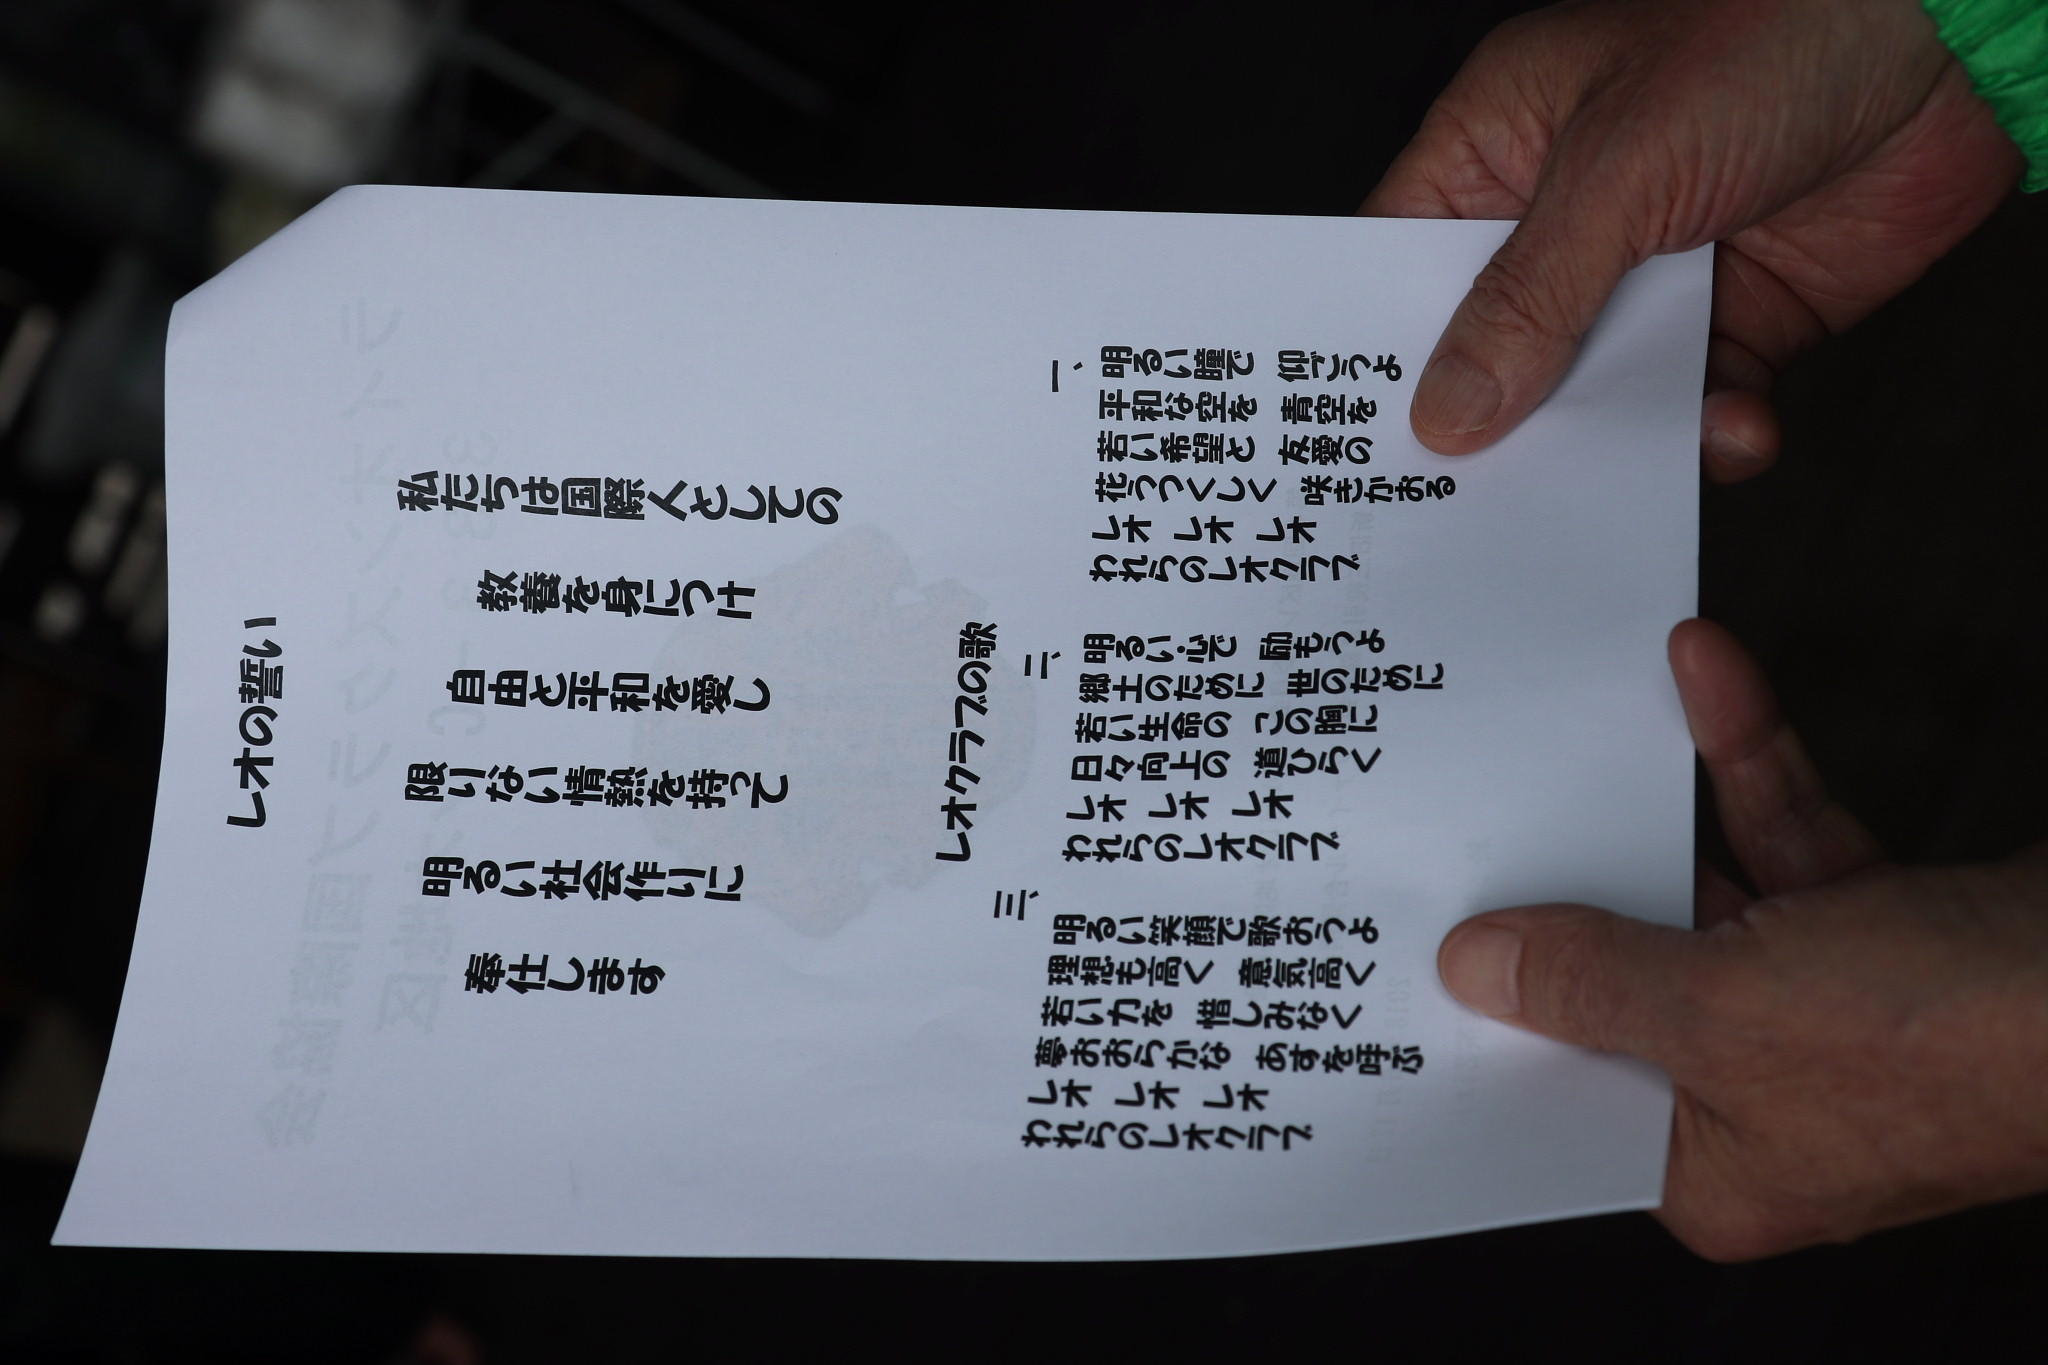 レオの誓い
私たちは国際人としての
教養を身につけ
自由と平和を愛し
限りない情熱を持って
明るい社会作りに
奉仕します
レオクラブの歌
一、
明るい瞳で 仰ごうよ
平和な空を 青空を
若い希望と 友愛の
花うつくしく 咲きかおる
レオ レオ レオ
われらのレオクラブ
二、
明るい心で 励もうよ
郷土のために 世のために
若い生命の この胸に
日々向上の 道ひらく
レオ レオ レオ
われらのレオクラブ
三、
明るい笑顔で歌おうよ
理想も高く 意気高く
若い力を 惜しみなく
夢おおらかな あすを呼ぶ
レオ レオ レオ
われらのレオクラブ